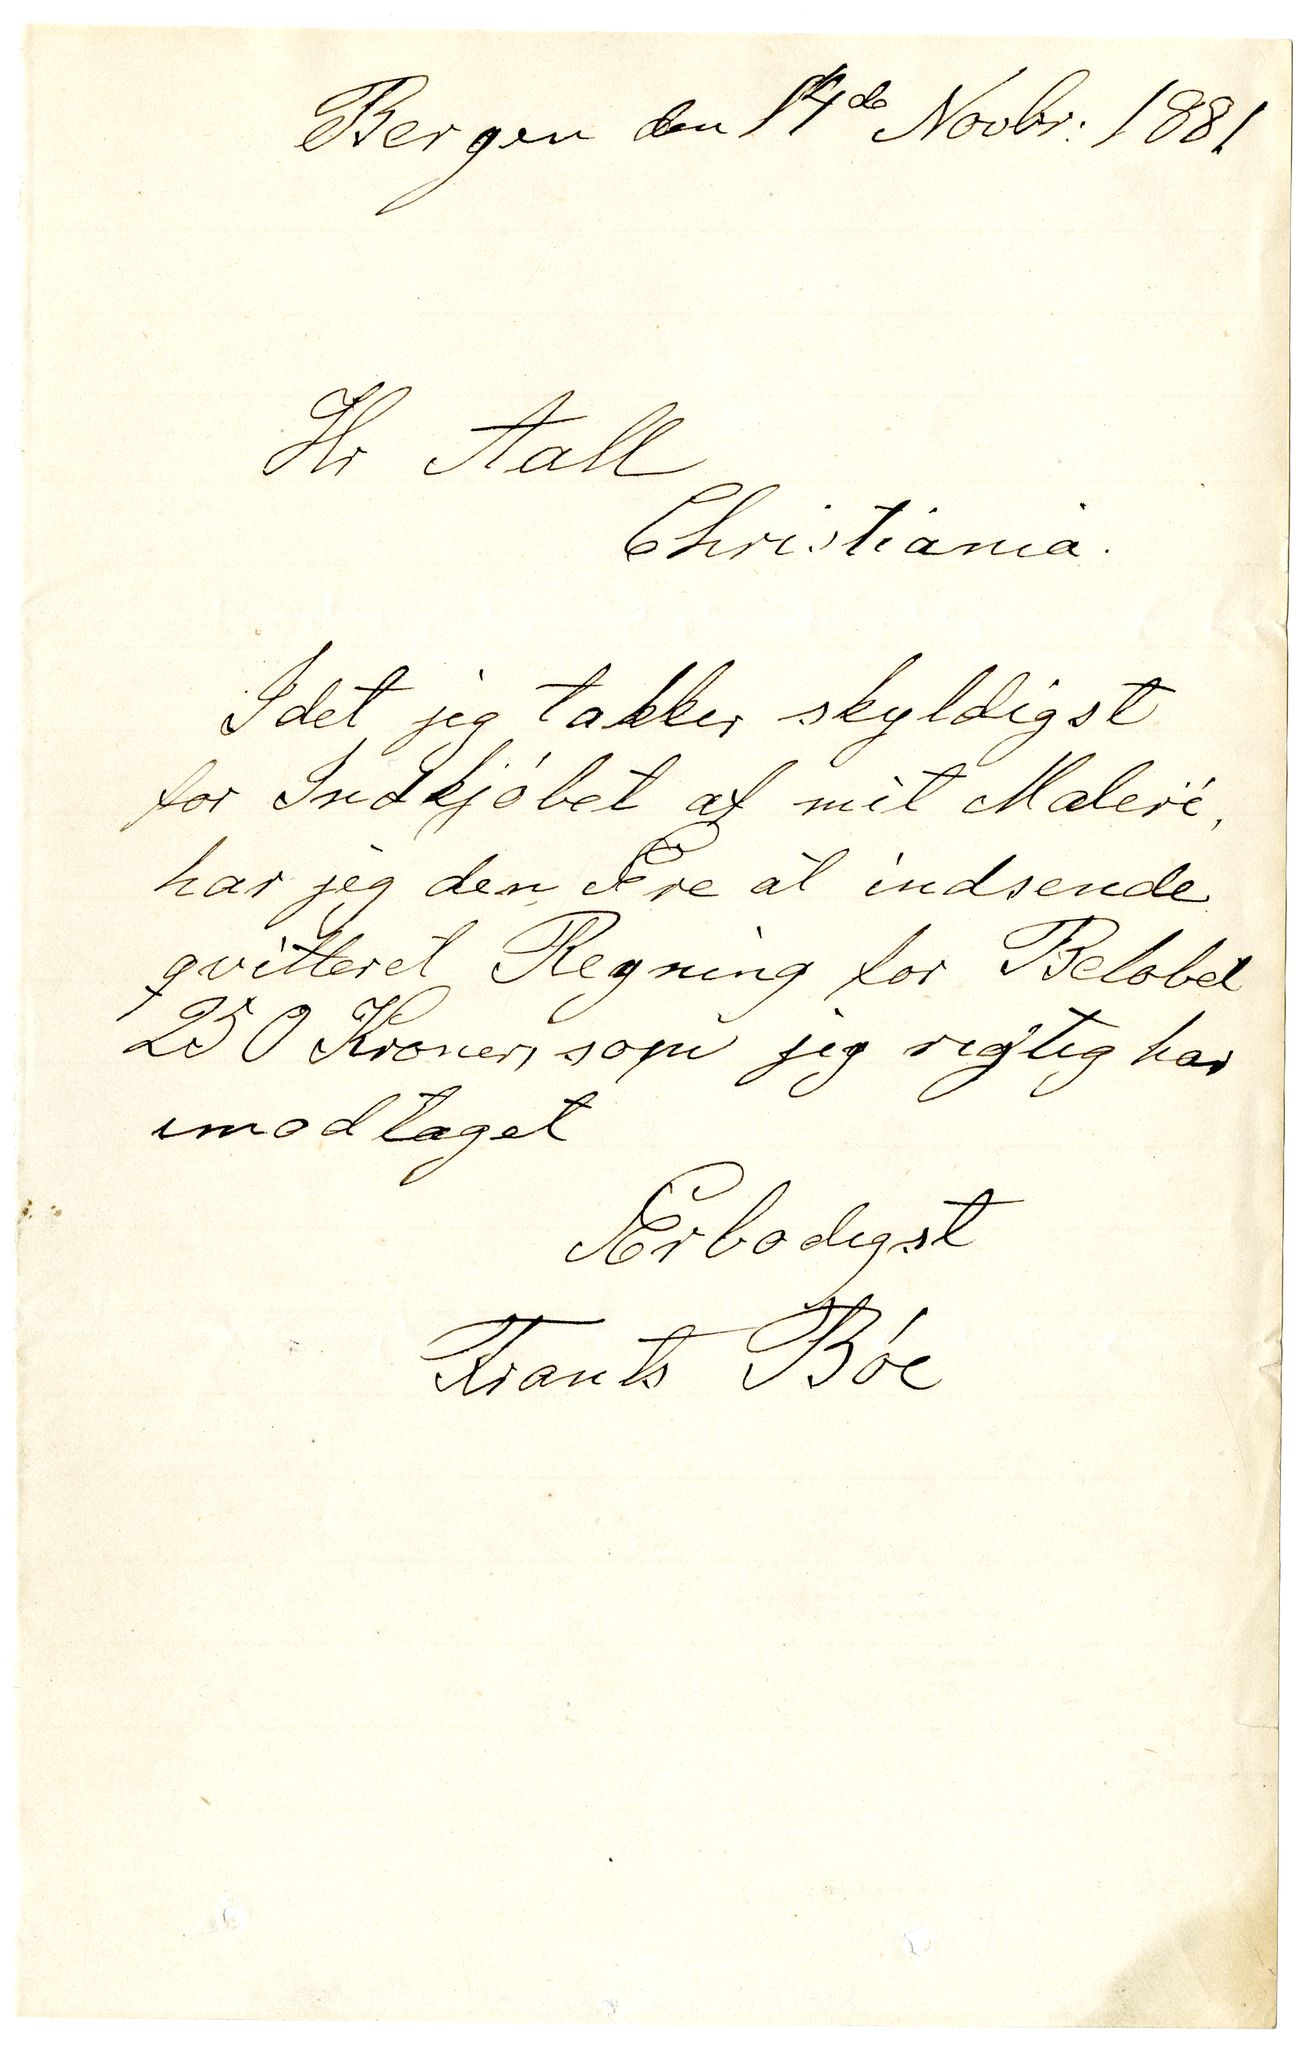 Bergen den 14de Novbr. 1881
Hr Aall
Christiania.
Idet jeg takker skyldigst
for Indkjóbet af mit Maleri,
har jeg den Ære at indsende
qvitteret Regning for Belobet
250 Kroner, som jeg rigtig har
imodtaget
Ærbodigst
Frants Bóe